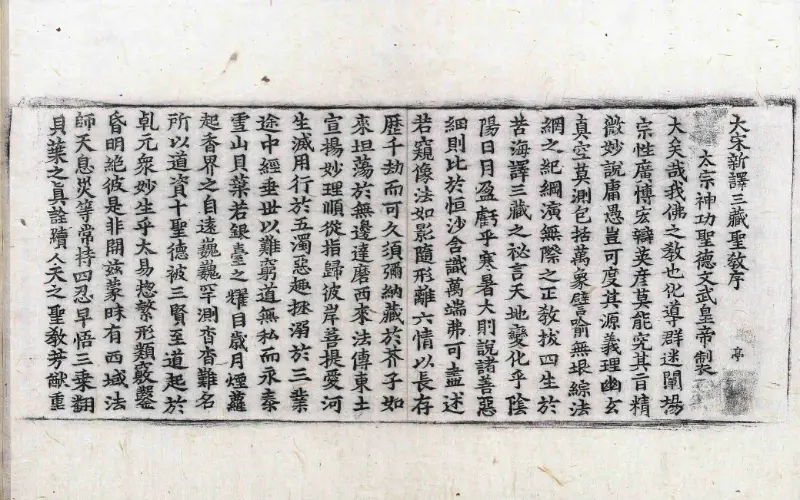 大宋新譯三藏聖教序 亭
太宗神功聖德文武皇帝製
大矣哉我佛之教也化導群迷闡揚
宗性廣博宏辯英彦莫能究其旨精
微妙說庸愚豈可度其源義理幽玄
真空莫測包括萬象譬喻無垠綜法
網之紀綱演無際之正教拔四生於
苦海譯三藏之祕言天地變化乎陰
陽日月盈虧乎寒暑大則說諸善惡
細則比於恒沙含識萬端弗可盡述
若窺像法如影隨形離六情以長存
歷千劫而可久須彌納藏於芥子如
來坦蕩於無邊達磨西來法傳東土
宣揚妙理順從指歸彼岸菩提愛河
生滅用行於五濁惡趣拯溺於三業
途中經垂世以難窮道無私而永泰
雪山貝葉若銀臺之耀目歲月煙蘿
起香界之自遠巍巍罕測杳杳難名
所以道資十聖德被三賢至道起於
乹元衆妙生乎太易惣繁形類竅鑿
昏明絶彼是非開兹蒙昧有西域法
師天息災等常持四忍早悟三乘翻
貝葉之真詮續人天之聖教芳猷重